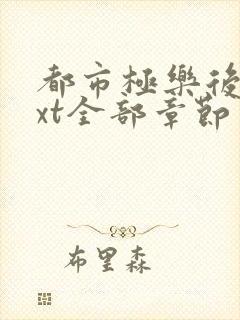 都市極樂後
xt全部章節
布里森